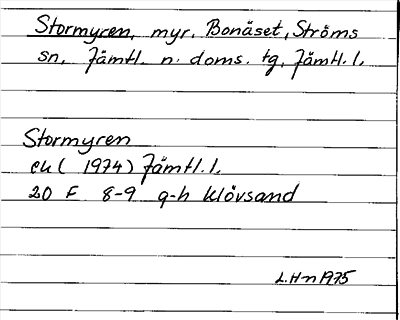 Stormyren, myr, Bonäset, Ströms
sn, Jämtl. n. doms. tg, Jämtl. l.
Stormyren
ek ( 1974) Jämtl. l.
20 F 8-9 g-h Klövsand
L.H-n 1975